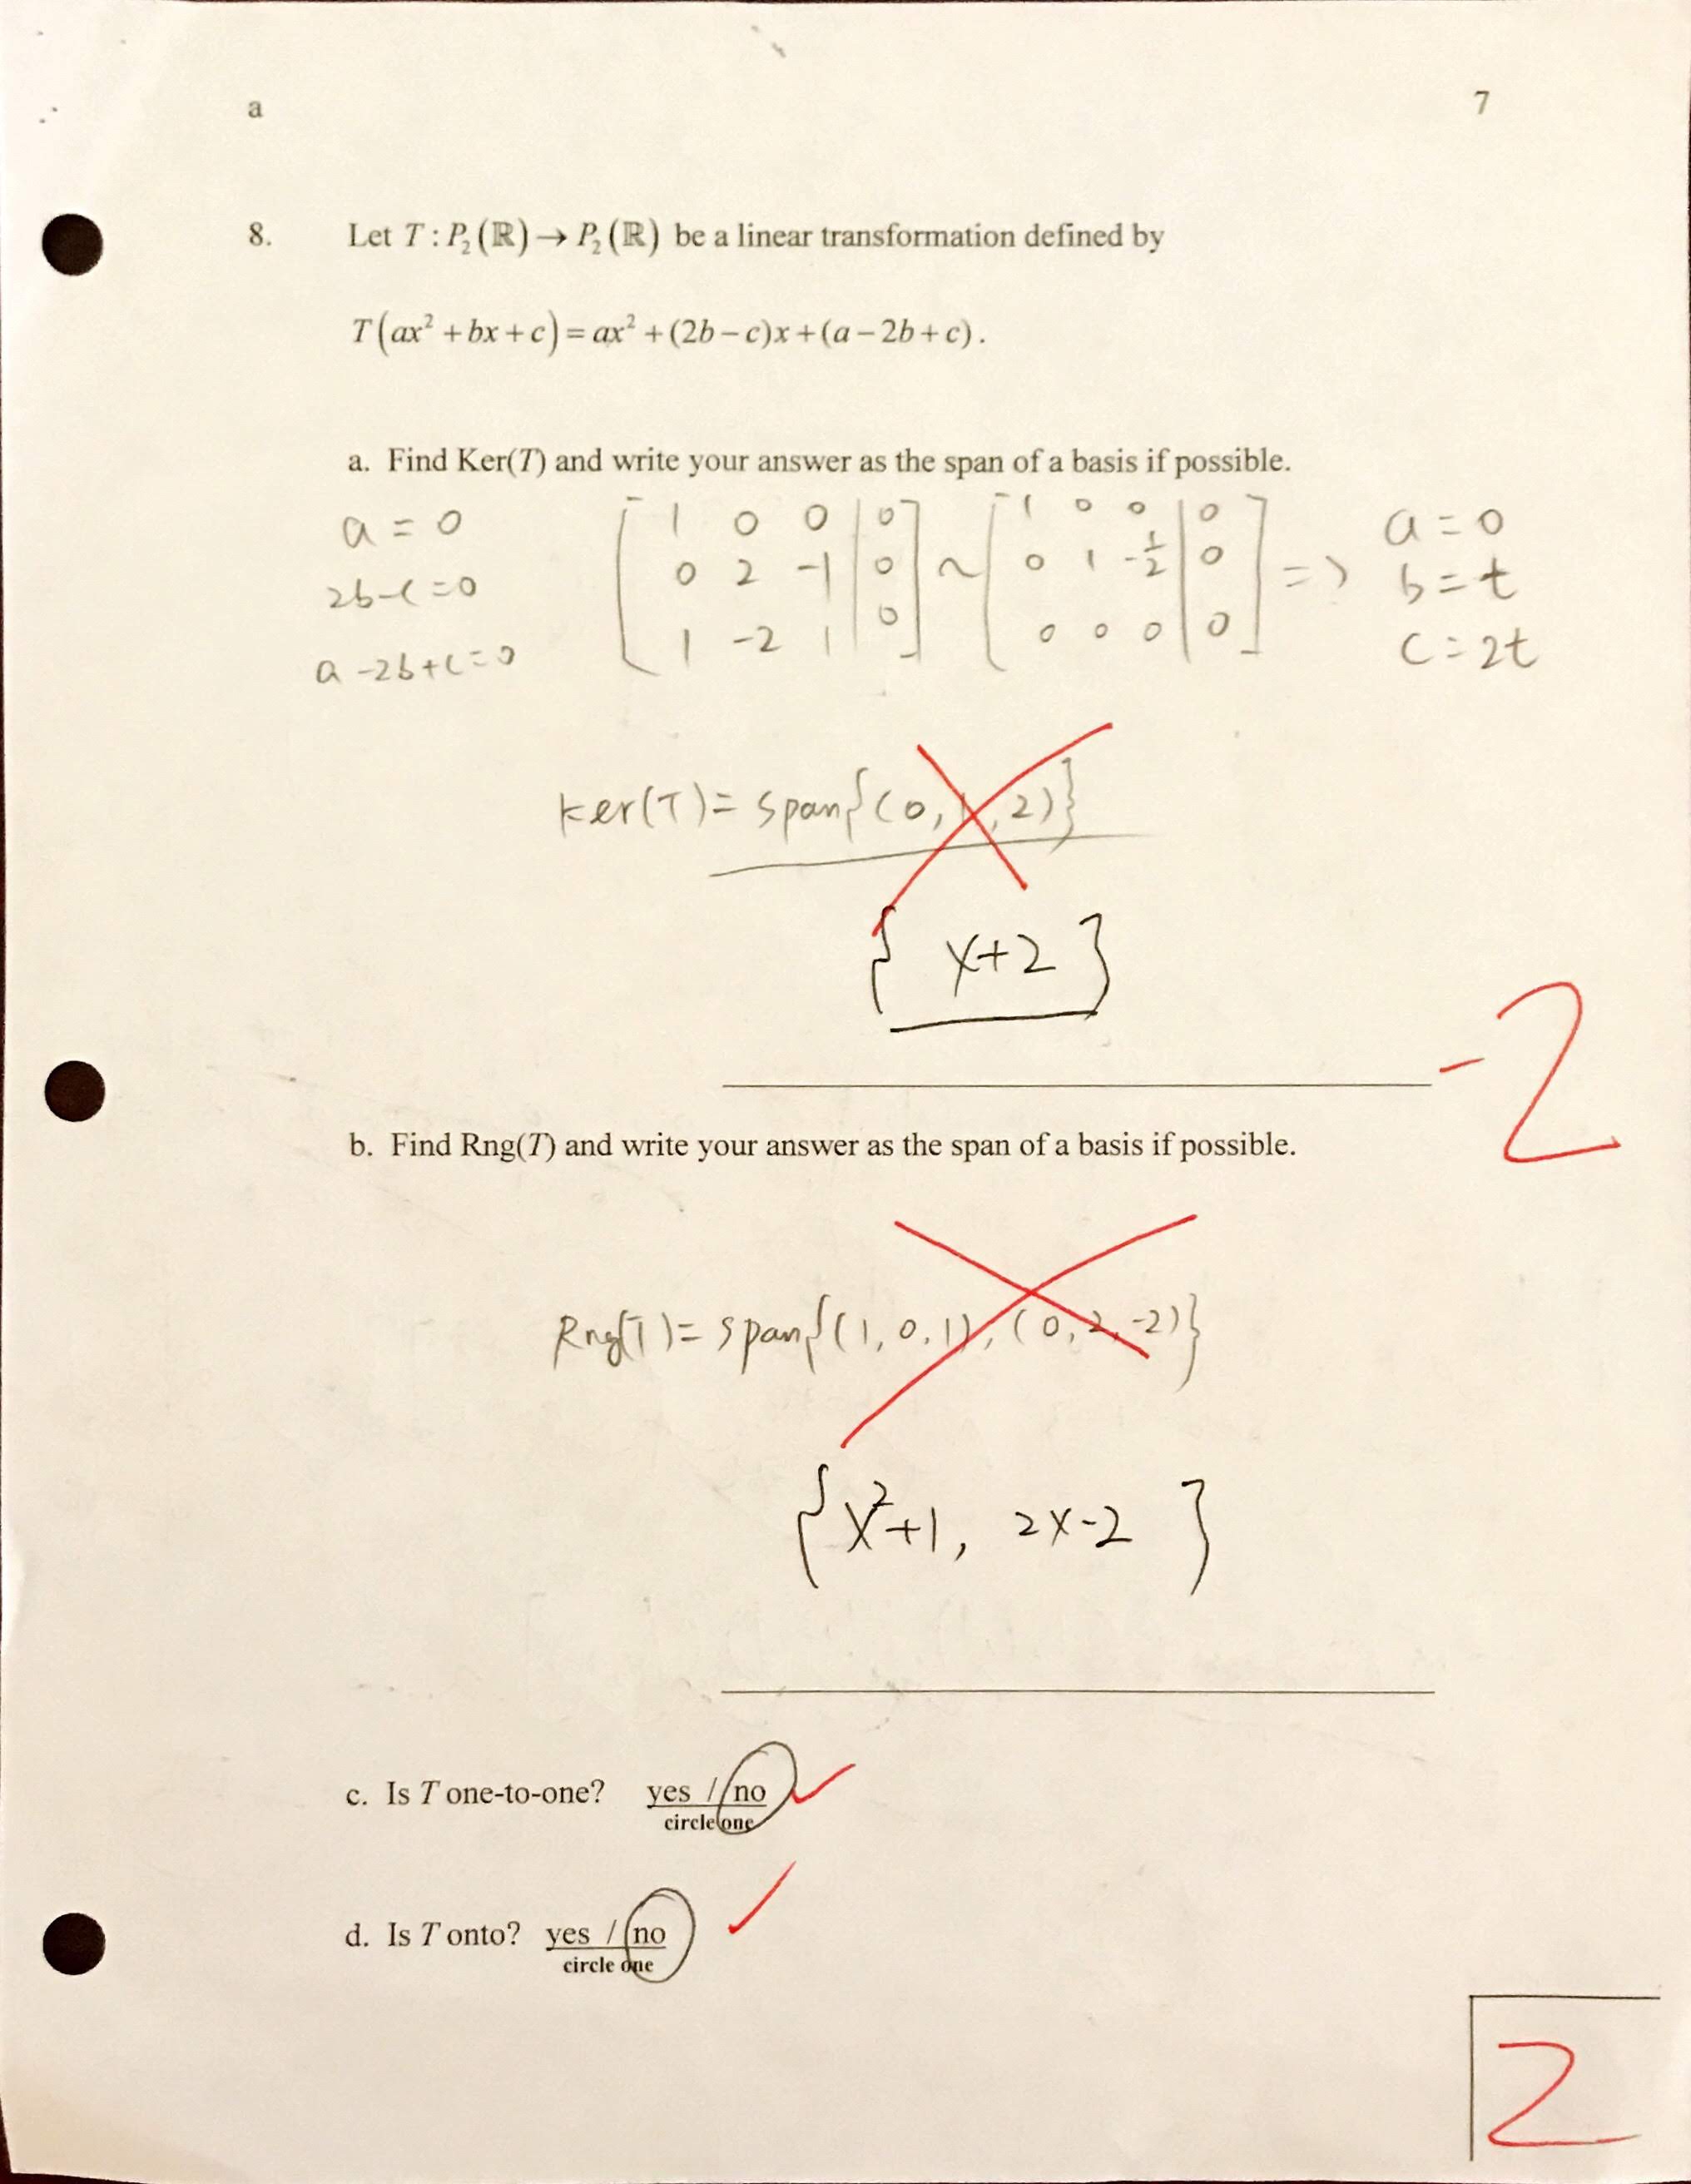 a 7
8. Let T : P₂(ℝ) → P₂(ℝ) be a linear transformation defined by
T(ax² + bx + c) = ax² + (2b − c)x + (a − 2b + c).
a. Find Ker(T) and write your answer as the span of a basis if possible.
a = 0
2b-c=0
a-2b+c=0
[1 0 0 | 0
0 2 -1 | 0
1 -2 1 | 0] ~ [1 0 0 | 0
0 1 -1/2 | 0
0 0 0 | 0] =>
a=0
b=t
c=2t
Ker(T)= span{(0,1,2)}
{ x+2 }
-2
b. Find Rng(T) and write your answer as the span of a basis if possible.
Rng(T)= span{(1,0,1), (0,2,-2)}
{x²+1, 2x-2 }
c. Is T one-to-one? yes / no
circle one
d. Is T onto? yes / no
circle one
2